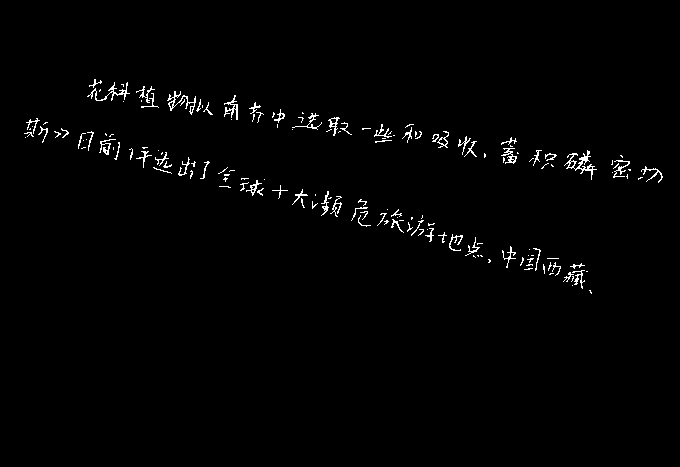 花科植物拟南芥中选取一些和吸收、蓄积磷密切
斯》日前评选出了全球十大濒危旅游地点,中国西藏、